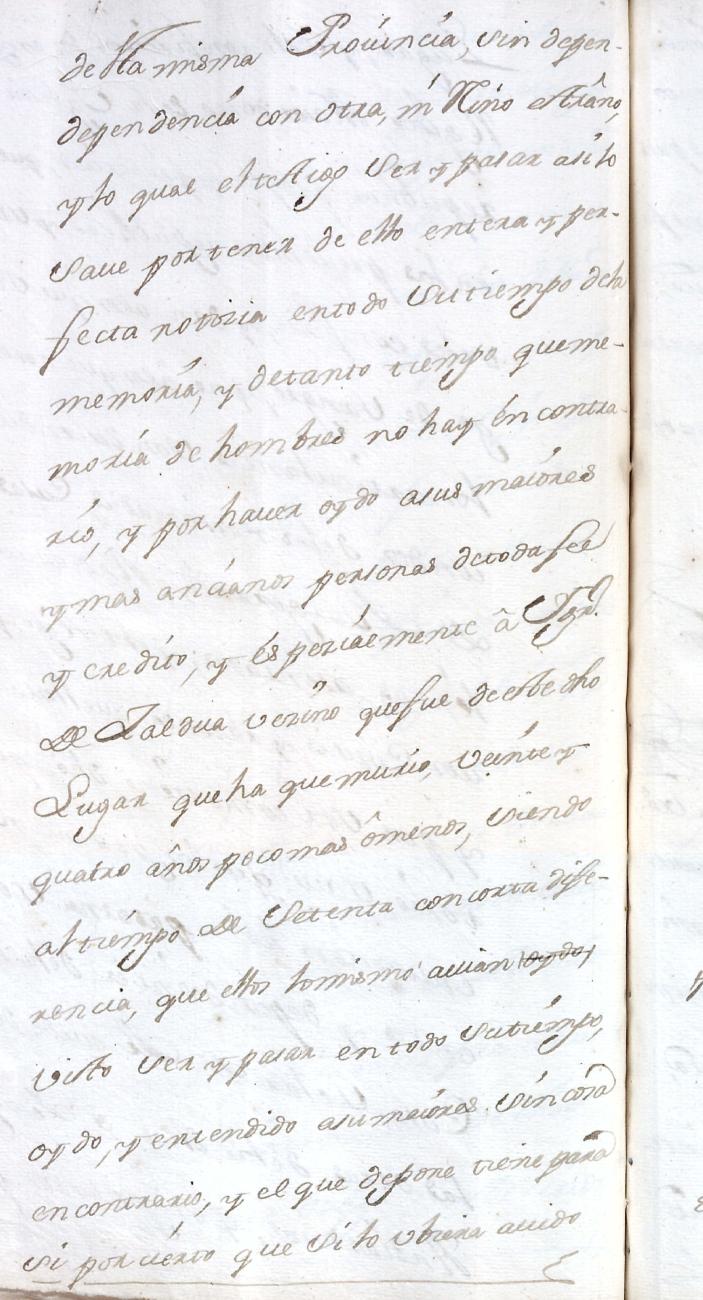 de esta misma Provincia, sin depen-
dependencia con otra, ni Reino estraño,
y lo qual el testigo ser y pasar asi lo
save por tener de ello entera y per-
fecta notoria en todo su tiempo de la
memoria, y de tanto tiempo que me-
moria de hombres no hay en contra-
rio, y por haver oydo a sus maiores
y mas ancianos personas de toda fee
y credito, y espezialmente â
de Zaldua vezino que fue de este dho
Lugar que ha que murio, veinte y
quatro años poco mas ô menos, siendo
al tiempo de setenta con corta dife-
rencia, que ellos lo mismo avian oydo,
visto ser y pasar en todo su tiempo,
oydo, y entendido a su maiores sin cosa
en contrario, y el que depone tiene para
si por cierto que si lo ubiera avido